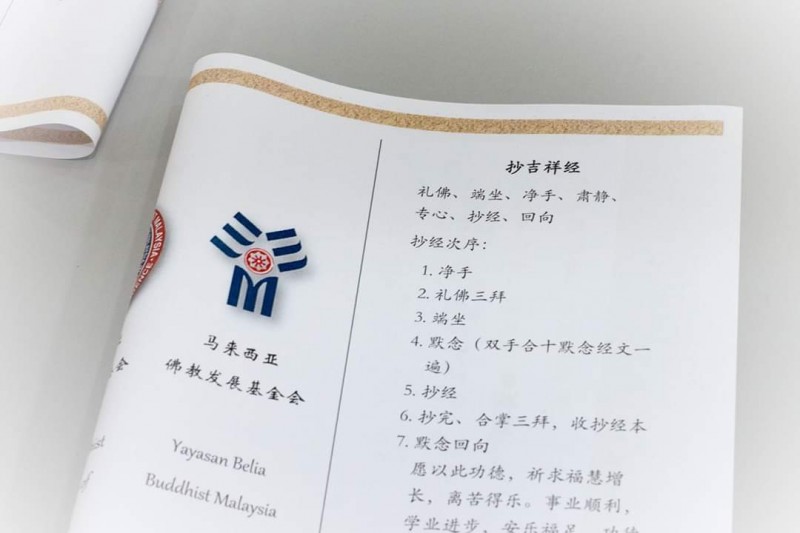 马来西亚
佛教发展基金会
Yayasan Belia
Buddhist Malaysia
抄吉祥经
礼佛、端坐、净手、肃静、
专心、抄经、回向
抄经次序：
1. 净手
2. 礼佛三拜
3. 端坐
4. 默念（双手合十默念经文一
遍）
5. 抄经
6. 抄完、合掌三拜，收抄经本
7. 默念回向
愿以此功德，祈求福慧增
长，离苦得乐。事业顺利，
学业进步，安乐福足，功德